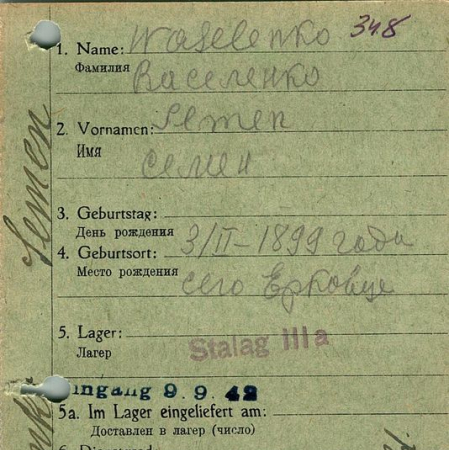 348
1. Name: Waselenko
Фамилия Василенко
2. Vornamen: Semen
Имя Семен
3. Geburtstag:
День рождения 3/II-1899 года
4. Geburtsort:
Место рождения село Ерковце
5. Lager: Stalag IIIa
Лагер
ingang 9.9.42
5a. Im Lager eingeliefert am:
Доставлен в лагер (число)
Semen